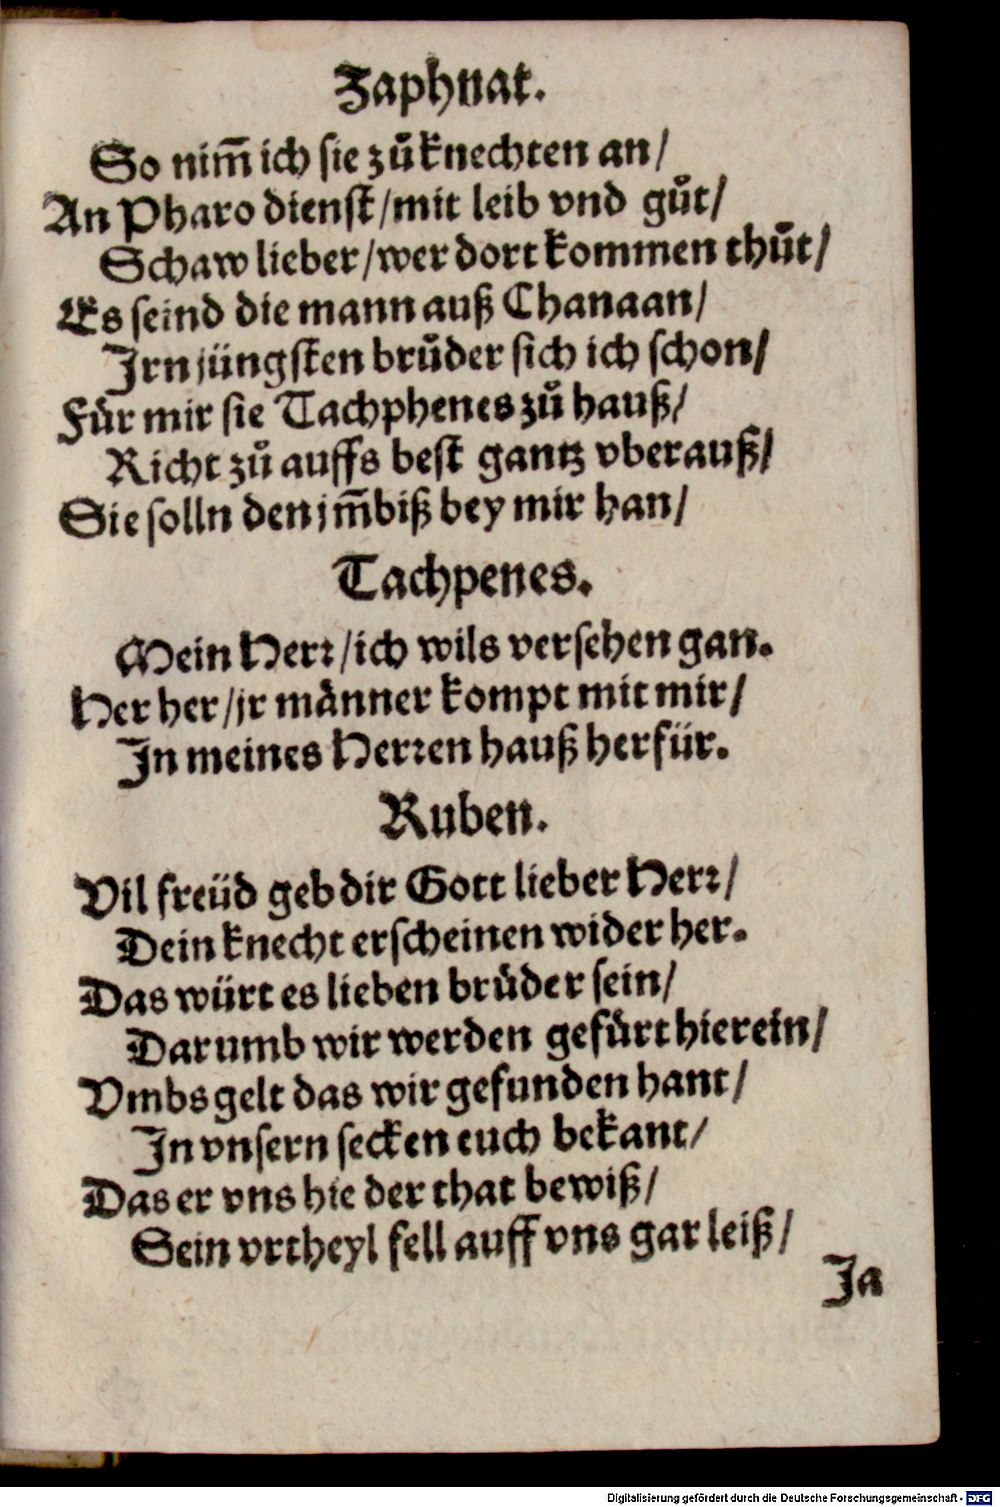 Zaphnat.
So nim̃ ich sie zů knechten an/
An Pharo dienst/mit leib vnd gůt/
Schaw lieber/wer dort kommen thůt/
Es seind die mann auß Chanaan/
Jrn jüngsten brůder sich ich schon/
Fůr mir sie Tachphenes zů hauß/
Richt zů auffs best gantz vberauß/
Sie solln den jm̃biß bey mir han/
Tachpenes.
Mein Herꝛ/ich wils versehen gan.
Her her/jr männer kompt mit mir/
Jn meines Herꝛen hauß herfür.
Ruben.
Vil freüd geb dir Gott lieber Herꝛ/
Dein knecht erscheinen wider her.
Das würt es lieben brůder sein/
Darumb wir werden gefůrt hierein/
Vmbs gelt das wir gefunden hant/
Jn vnsern secken euch bekant/
Das er vns hie der that bewiß/
Sein vrtheyl fell auff vns gar leiß/
Ja
Digitalisierung gefördert durch die Deutsche Forschungsgemeinschaft - DFG